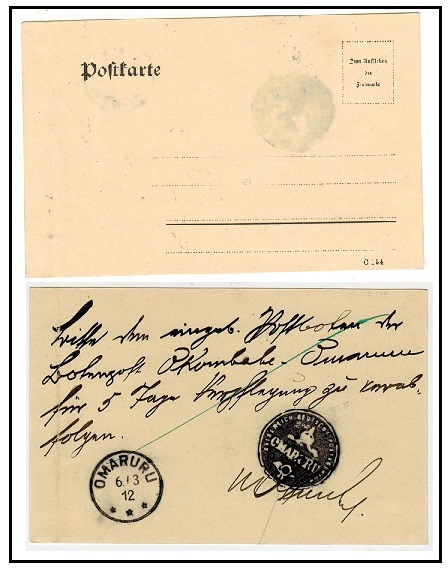 Postkarte
Zum Aufkleben
der
Freimarke
C 144
Bitte dem eingeb. Postboten der
Botenpost Okombahe-Omaruru
für 5 Tage Verpflegung zu verab-
folgen.
OMARURU
6/3
12
* * *
OMARURU